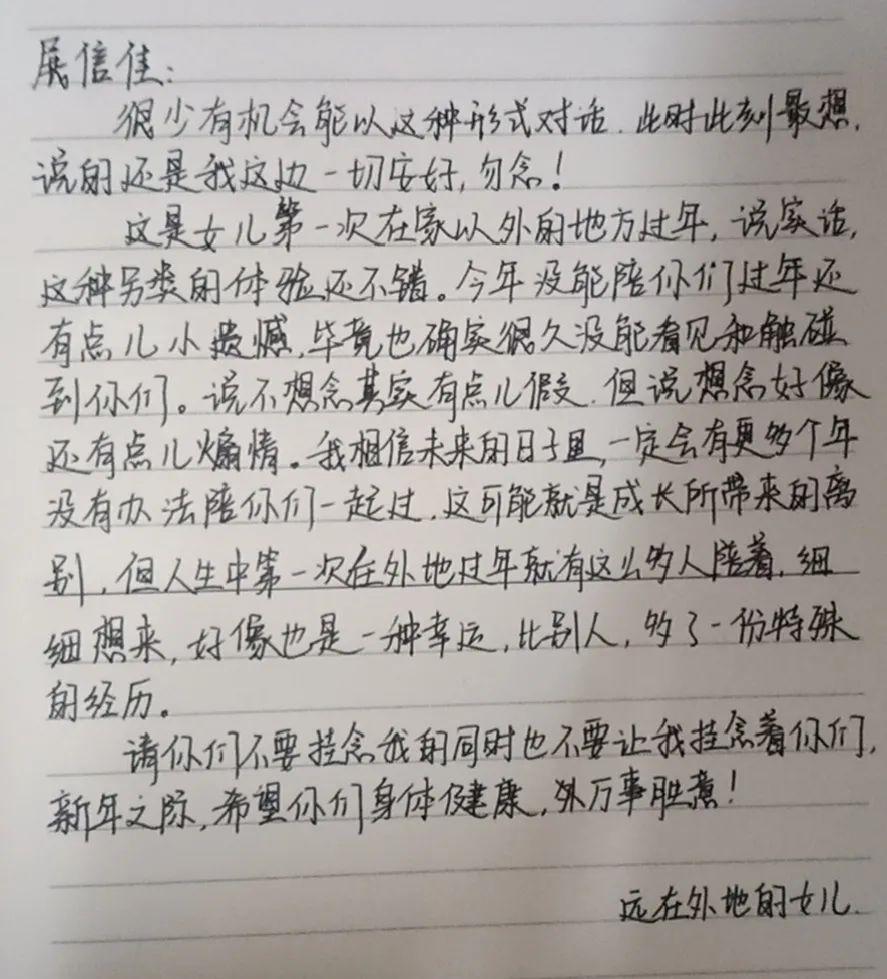 展信佳：
很少有机会能以这种形式对话，此时此刻最想，
说的还是我这边一切安好，勿念！
这是女儿第一次在家以外的地方过年，说实话，
这种另类的体验还不错。今年没能陪你们过年还
有点儿小遗憾，毕竟也确实很久没能看见和触碰
到你们。说不想念其实有点儿假，但说想念好像
还有点儿煽情。我相信未来的日子里，一定会有更多个年
没有办法陪你们一起过，这可能就是成长所带来的离
别，但人生中第一次在外地过年就有这么多人陪着，细
细想来，好像也是一种幸运，比别人，多了一份特殊
的经历。
请你们不要挂念我的同时也不要让我挂念着你们，
新年之际，希望你们身体健康，万事胜意！
远在外地的女儿.